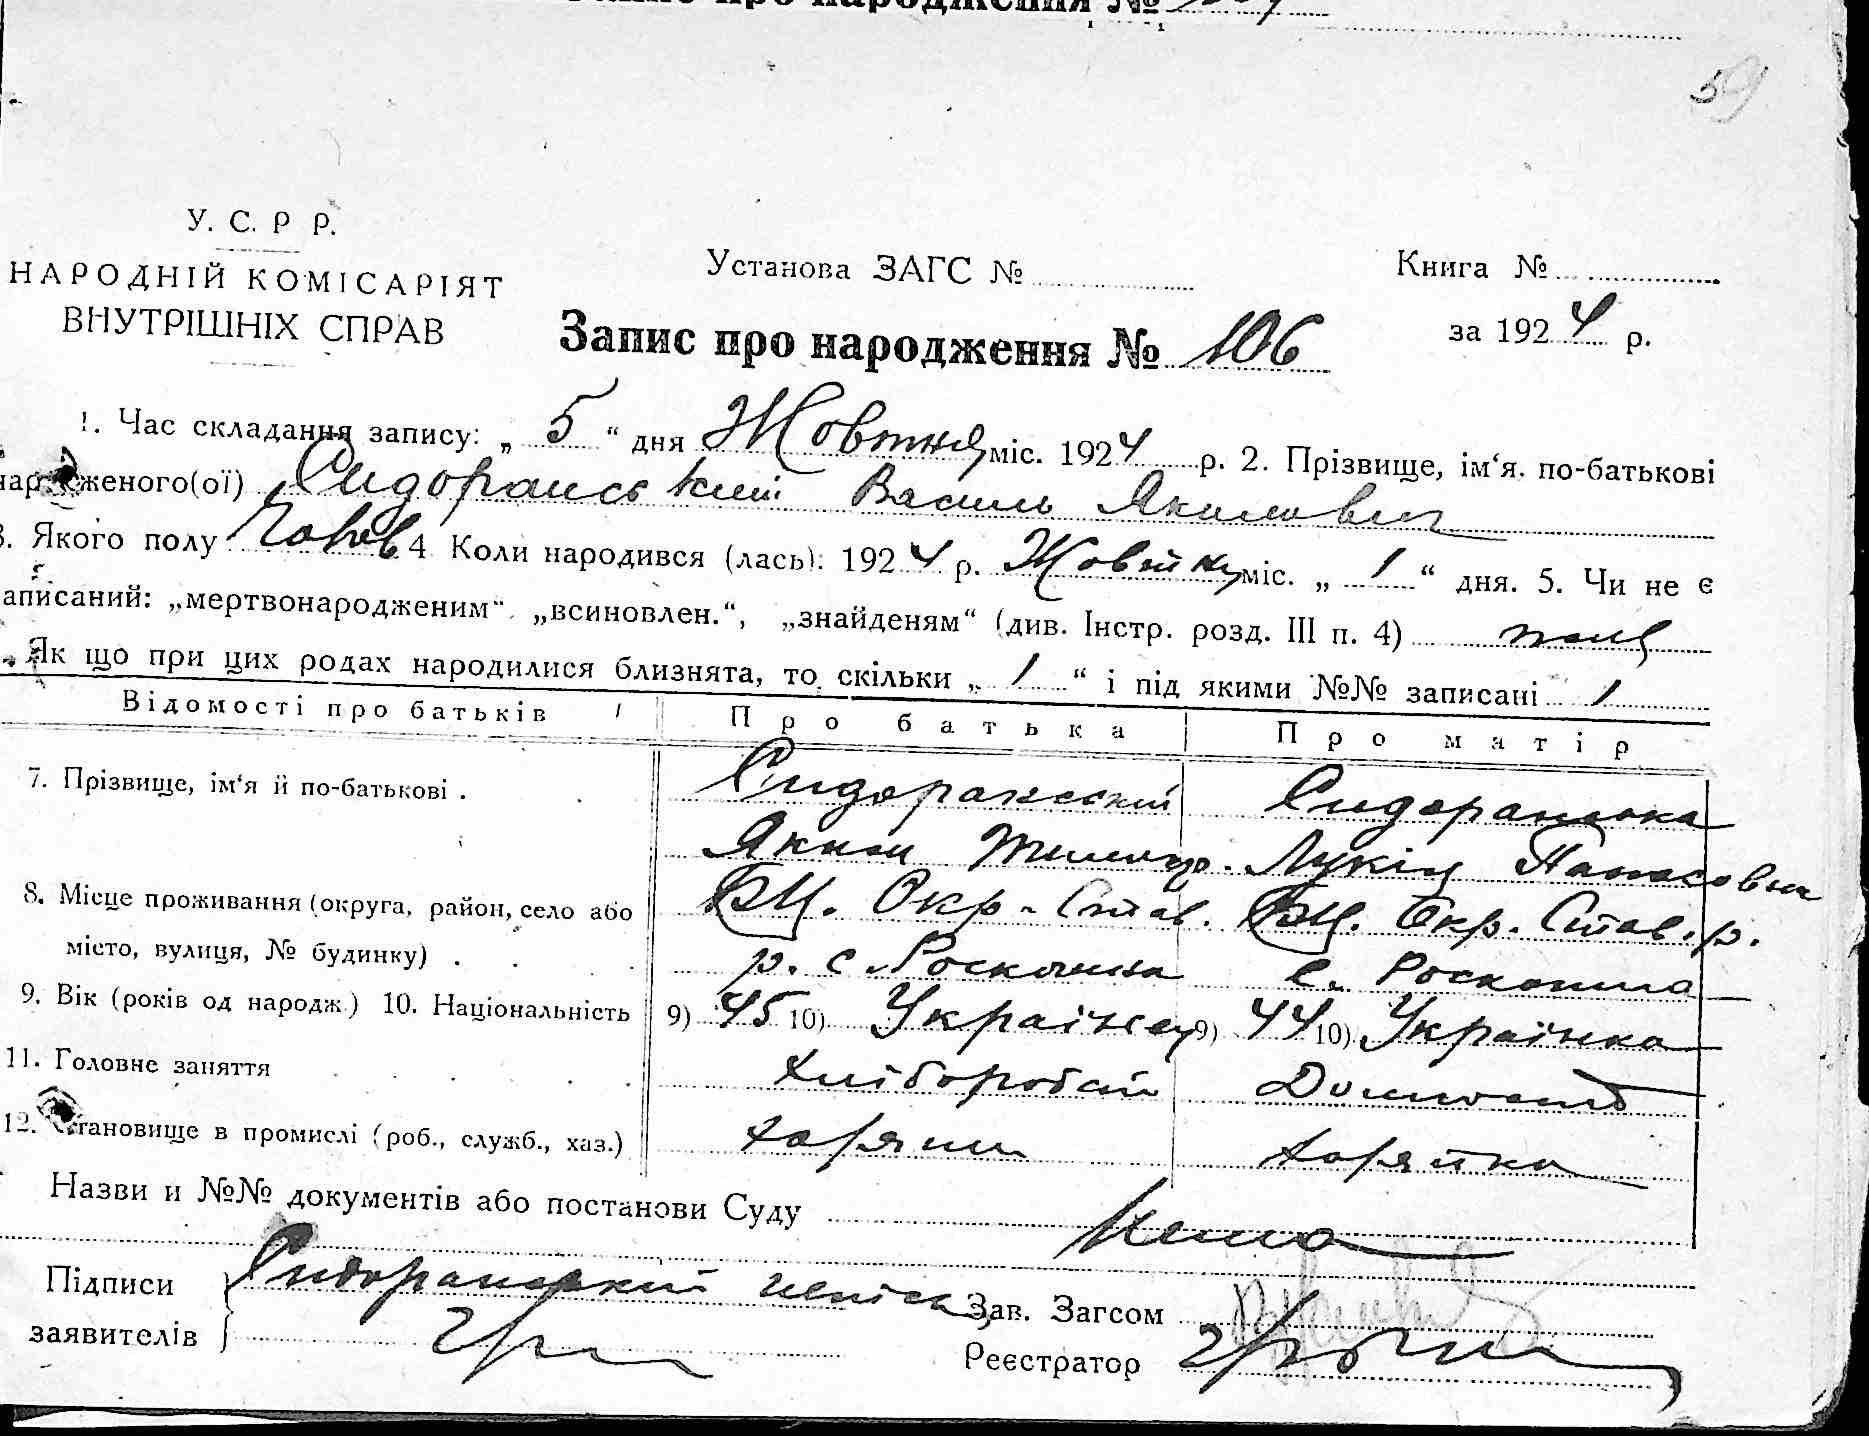 Запис про народження №
59
У. С. Р Р.
НАРОДНІЙ КОМІСАРІЯТ
ВНУТРІШНІХ СПРАВ
Установа ЗАГС №
Книга №
за 1924 р.
Запис про народження № 106
1. Час складання запису: „5“ дня Жовтня міс. 1924 р. 2. Прізвище, ім‘я. по-батькові
народженого(ої) Сидоранський Василь Якимович
3. Якого полу Чолов 4 Коли народився (лась): 1924 р. Жовтня міс. „1“ дня. 5. Чи не є
записаний: „мертвонародженим“. „всиновлен.“, „знайденям“ (див. Інстр. розд. III п. 4)
Як що при цих родах народилися близнята, то скільки „1“ і під якими №№ записані 1
Відомості про батьків Про батька Про матір
7. Прізвище, ім‘я й по-батькові . Сидоранський Сидоранська
Яким Тимош. Лукія Панасовна
8. Місце проживання (округа, район, село або БЦ. Окр. Став. БЦ. Окр. Став. р.
місто, вулиця, № будинку) . р. с Роскошна с. Роскошна
9. Вік (років од народж.) 10. Національність 9) 45 10) Українец 9) 44 10) Українка
11. Головне заняття Хлібороб
12. Становище в промислі (роб., служб., хаз.) хазяин хазяйка
Назви и №№ документів або постанови Суду Нема
Підписи Сидоранский
заявителів
Зав. Загсом
Реєстратор